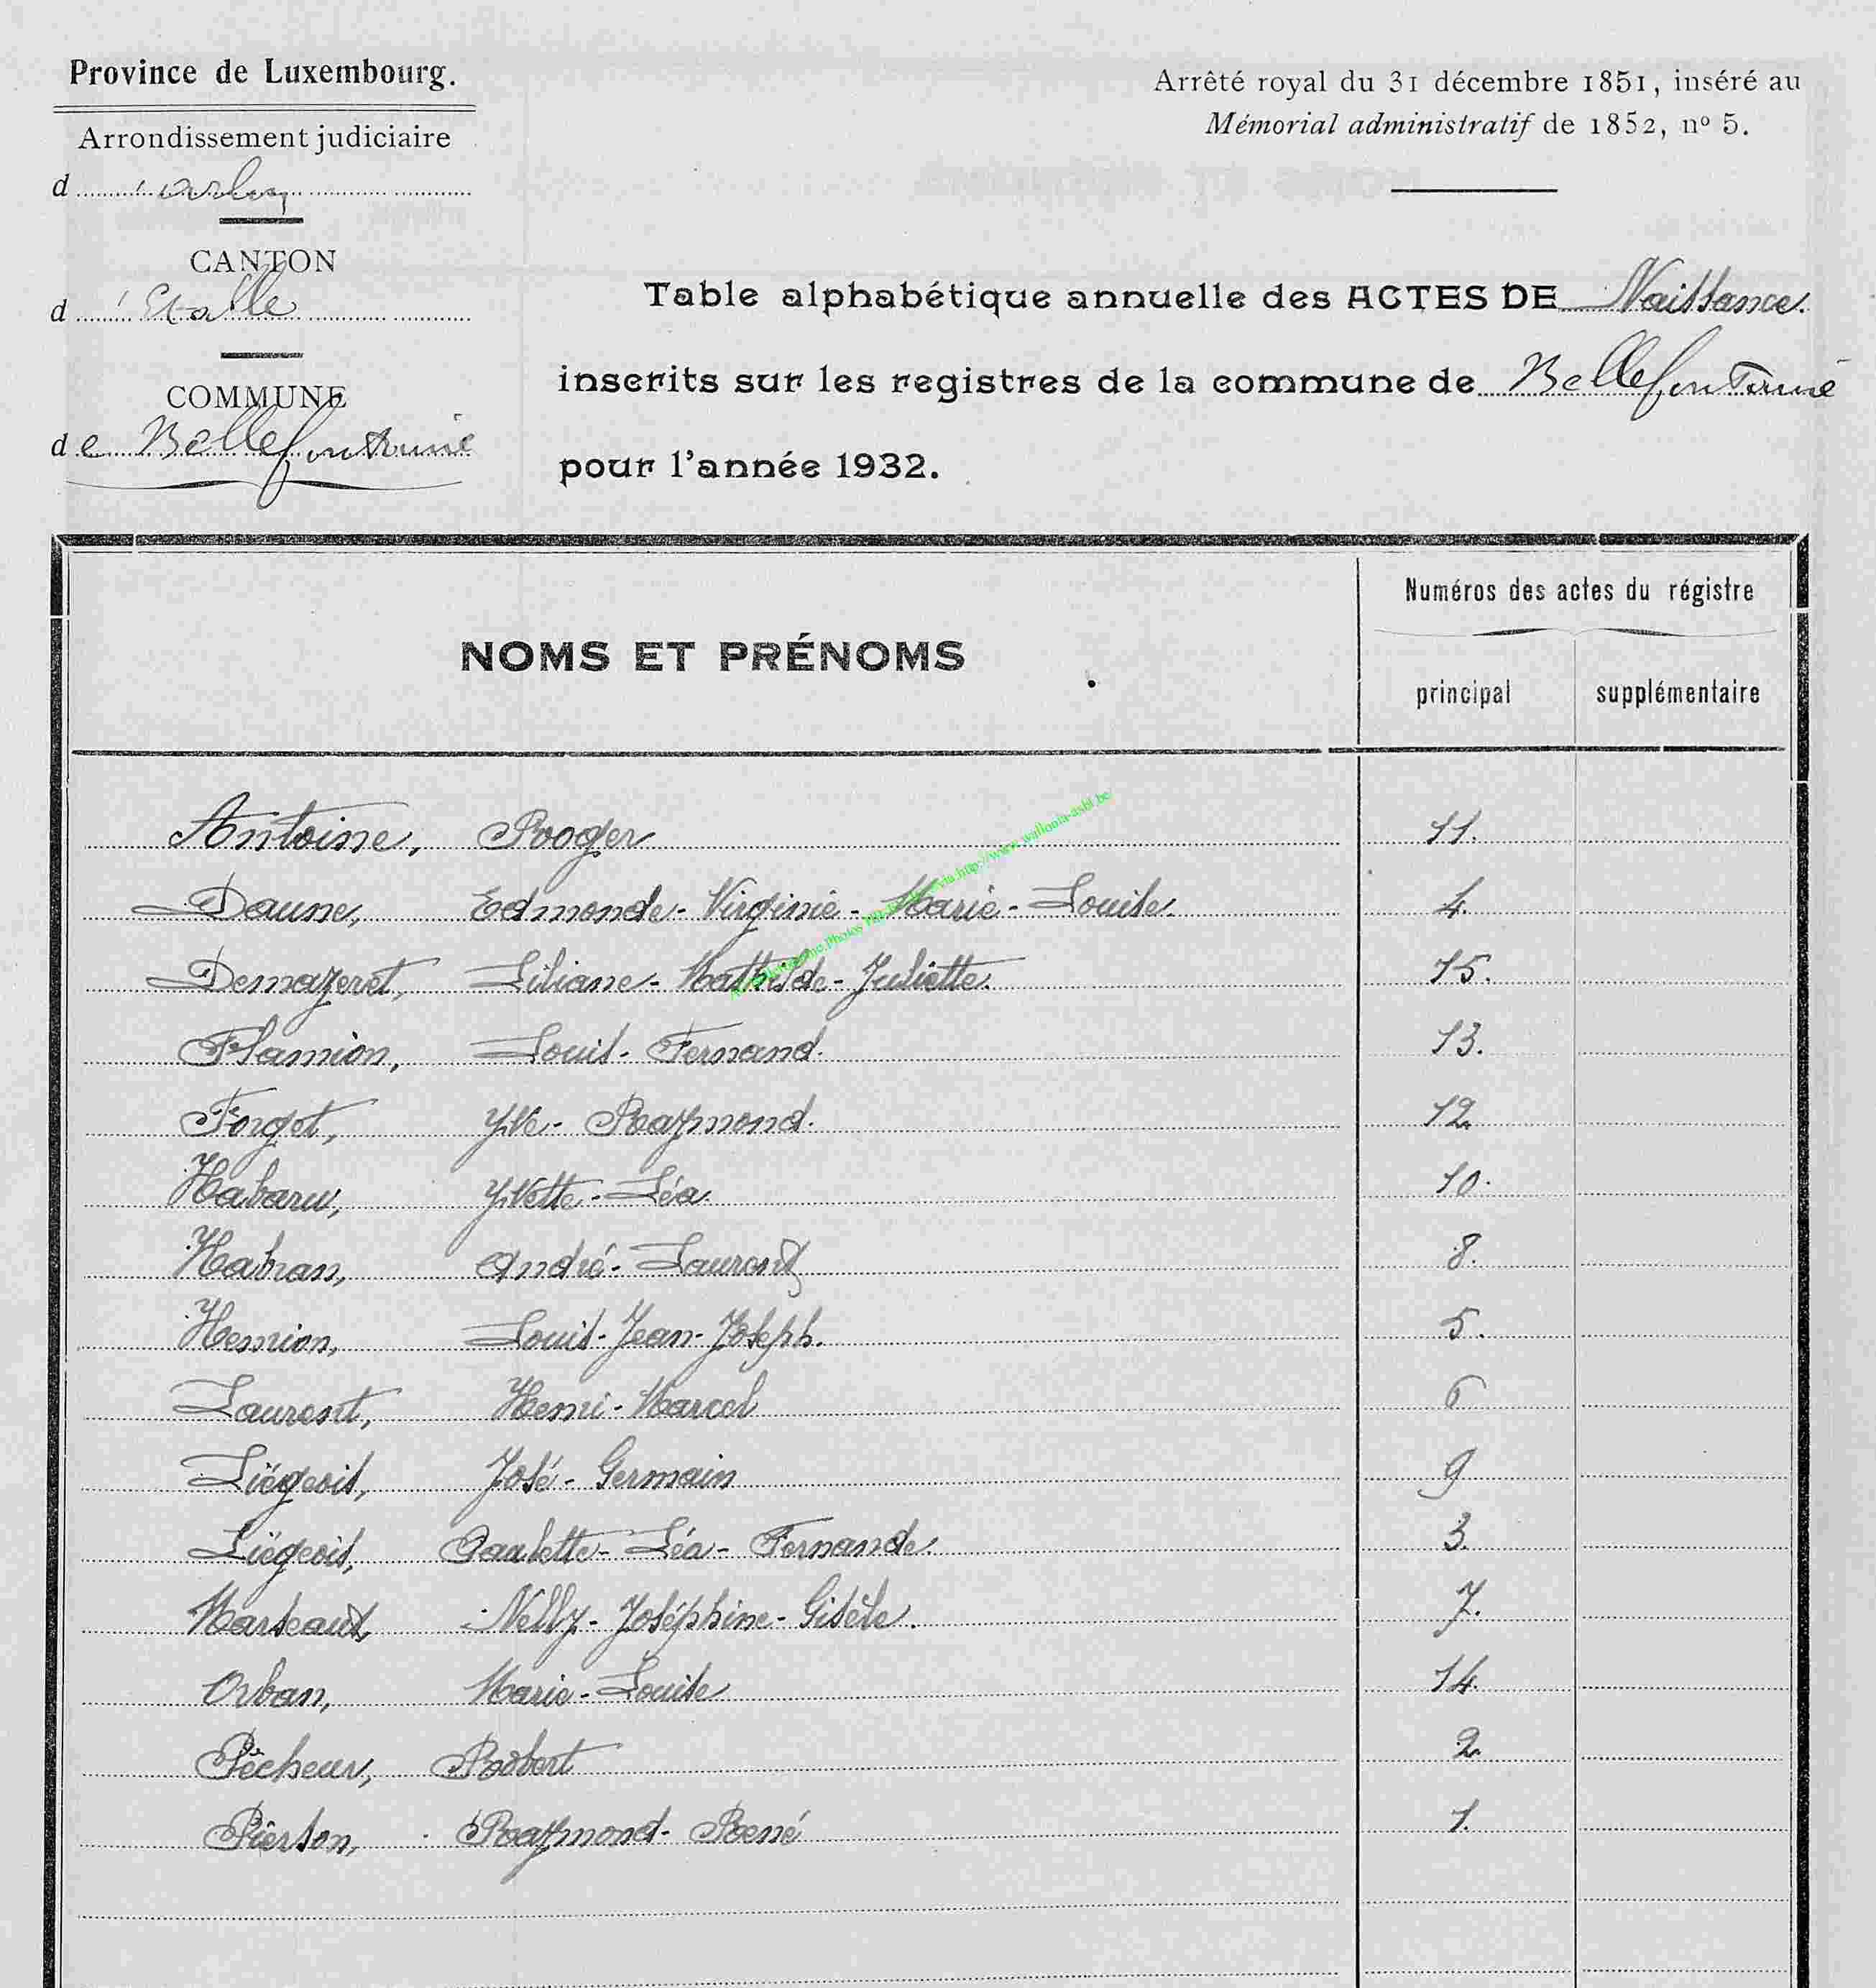 Province de Luxembourg.
Arrondissement judiciaire
d'Arlon
CANTON
d'Etalle
COMMUNE
de Bellefontaine
Arrêté royal du 31 décembre 1851, inséré au
Mémorial administratif de 1852, nº 5.
Table alphabétique annuelle des ACTES DE Naissance.
inscrits sur les registres de la commune de Bellefontaine
pour l'année 1932.
NOMS ET PRÉNOMS
Numéros des actes du régistre
principal supplémentaire
Antoine, Roger 11.
Daune, Edmonde-Virginie-Marie-Louise. 4.
Demazeret, Liliane-Mathilde-Juliette. 15.
Flamion, Louis-Fernand. 13.
Forget, Yve-Raymond. 12.
Habaru, Yvette-Léa. 10.
Habran, André-Laurent 8.
Henrion, Louis-Jean-Joseph. 5.
Laurent, Henri-Marcel 6
Liégeois, José-Germain 9
Liégeois, Paulette-Léa-Fernande. 3.
Marteaux, Nelly-Joséphine-Gisèle. 7.
Orban, Marie-Louise 14.
Pêcheur, Robert 2.
Pierson, Raymond-René 1.
http://www.wallonia-asbl.be